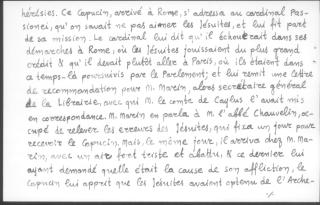 hérésies. Ce Capucin, arrivé à Rome, s'adressa au cardinal Pas-
sionei, qu'on savait ne pas aimer les Jésuites, et lui fit part
de sa mission. Le cardinal lui dit qu'il échouerait dans ses
démarches à Rome, où les Jésuites jouissaient du plus grand
crédit & qu'il devait plutôt aller à Paris, où ils étaient dans
ce temps-là poursuivis par le Parlement; et lui remit une lettre
de recommandation pour M. Marin, alors secrétaire général
de la Librairie, avec qui M. le comte de Caylus l'avait mis
en correspondance. M. Marin en parla à M. l'abbé Chauvelin, oc-
cupé de relever les erreurs des Jésuites, qui fixa un jour pour
recevoir le Capucin, mais, le même jour, il arriva chez M. Ma-
rin, avec un air fort triste et abattu, & ce dernier lui
ayant demandé quelle était la cause de son affliction, le
Capucin lui apprit que les Jésuites avaient obtenu de l'Arche-